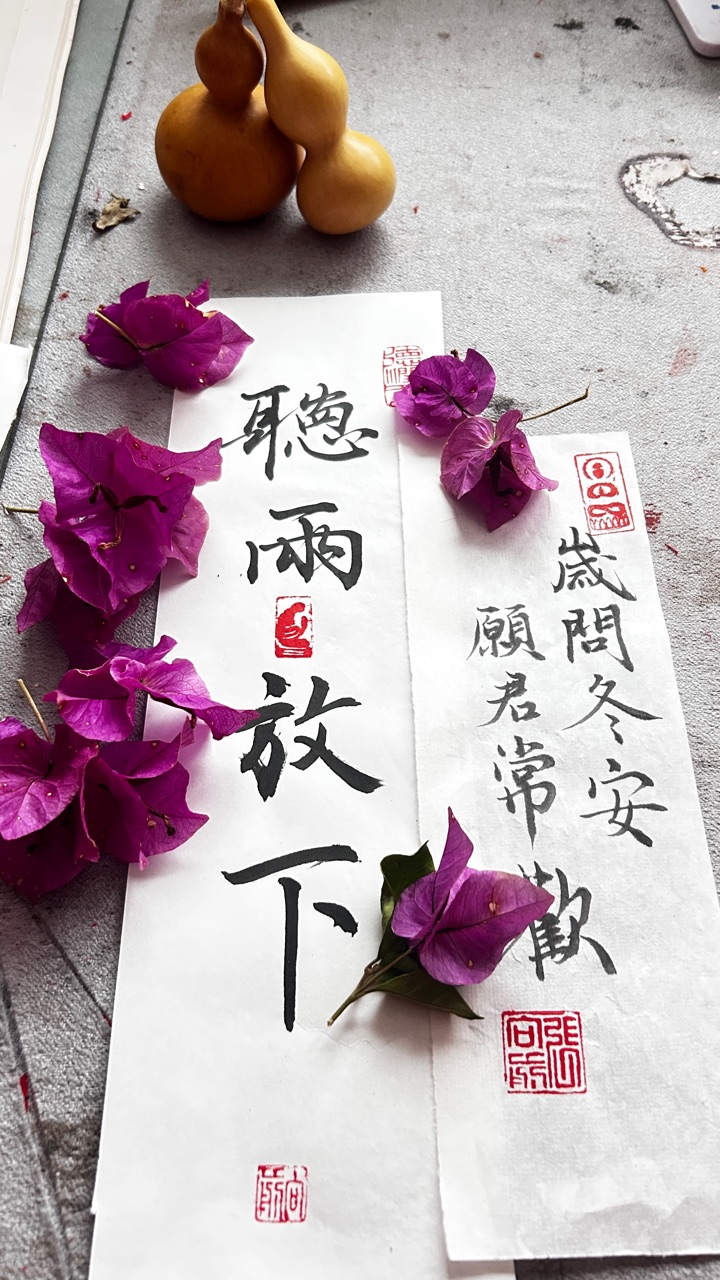 聽雨
放下
歲問冬安
願君常歡